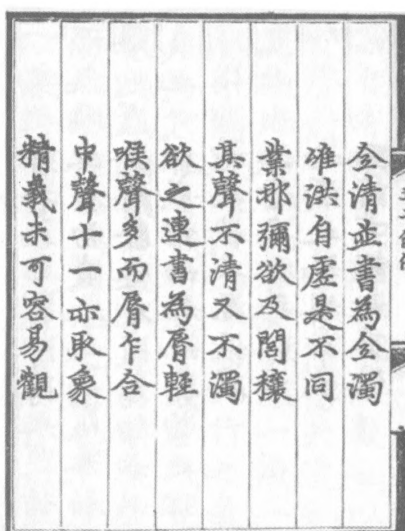 全清並書為全濁
唯洪自虛是不同
業那彌欲及閭穰
其聲不清又不濁
欲之連書為脣輕
喉聲多而脣乍合
中聲十一亦取象
精義未可容易觀